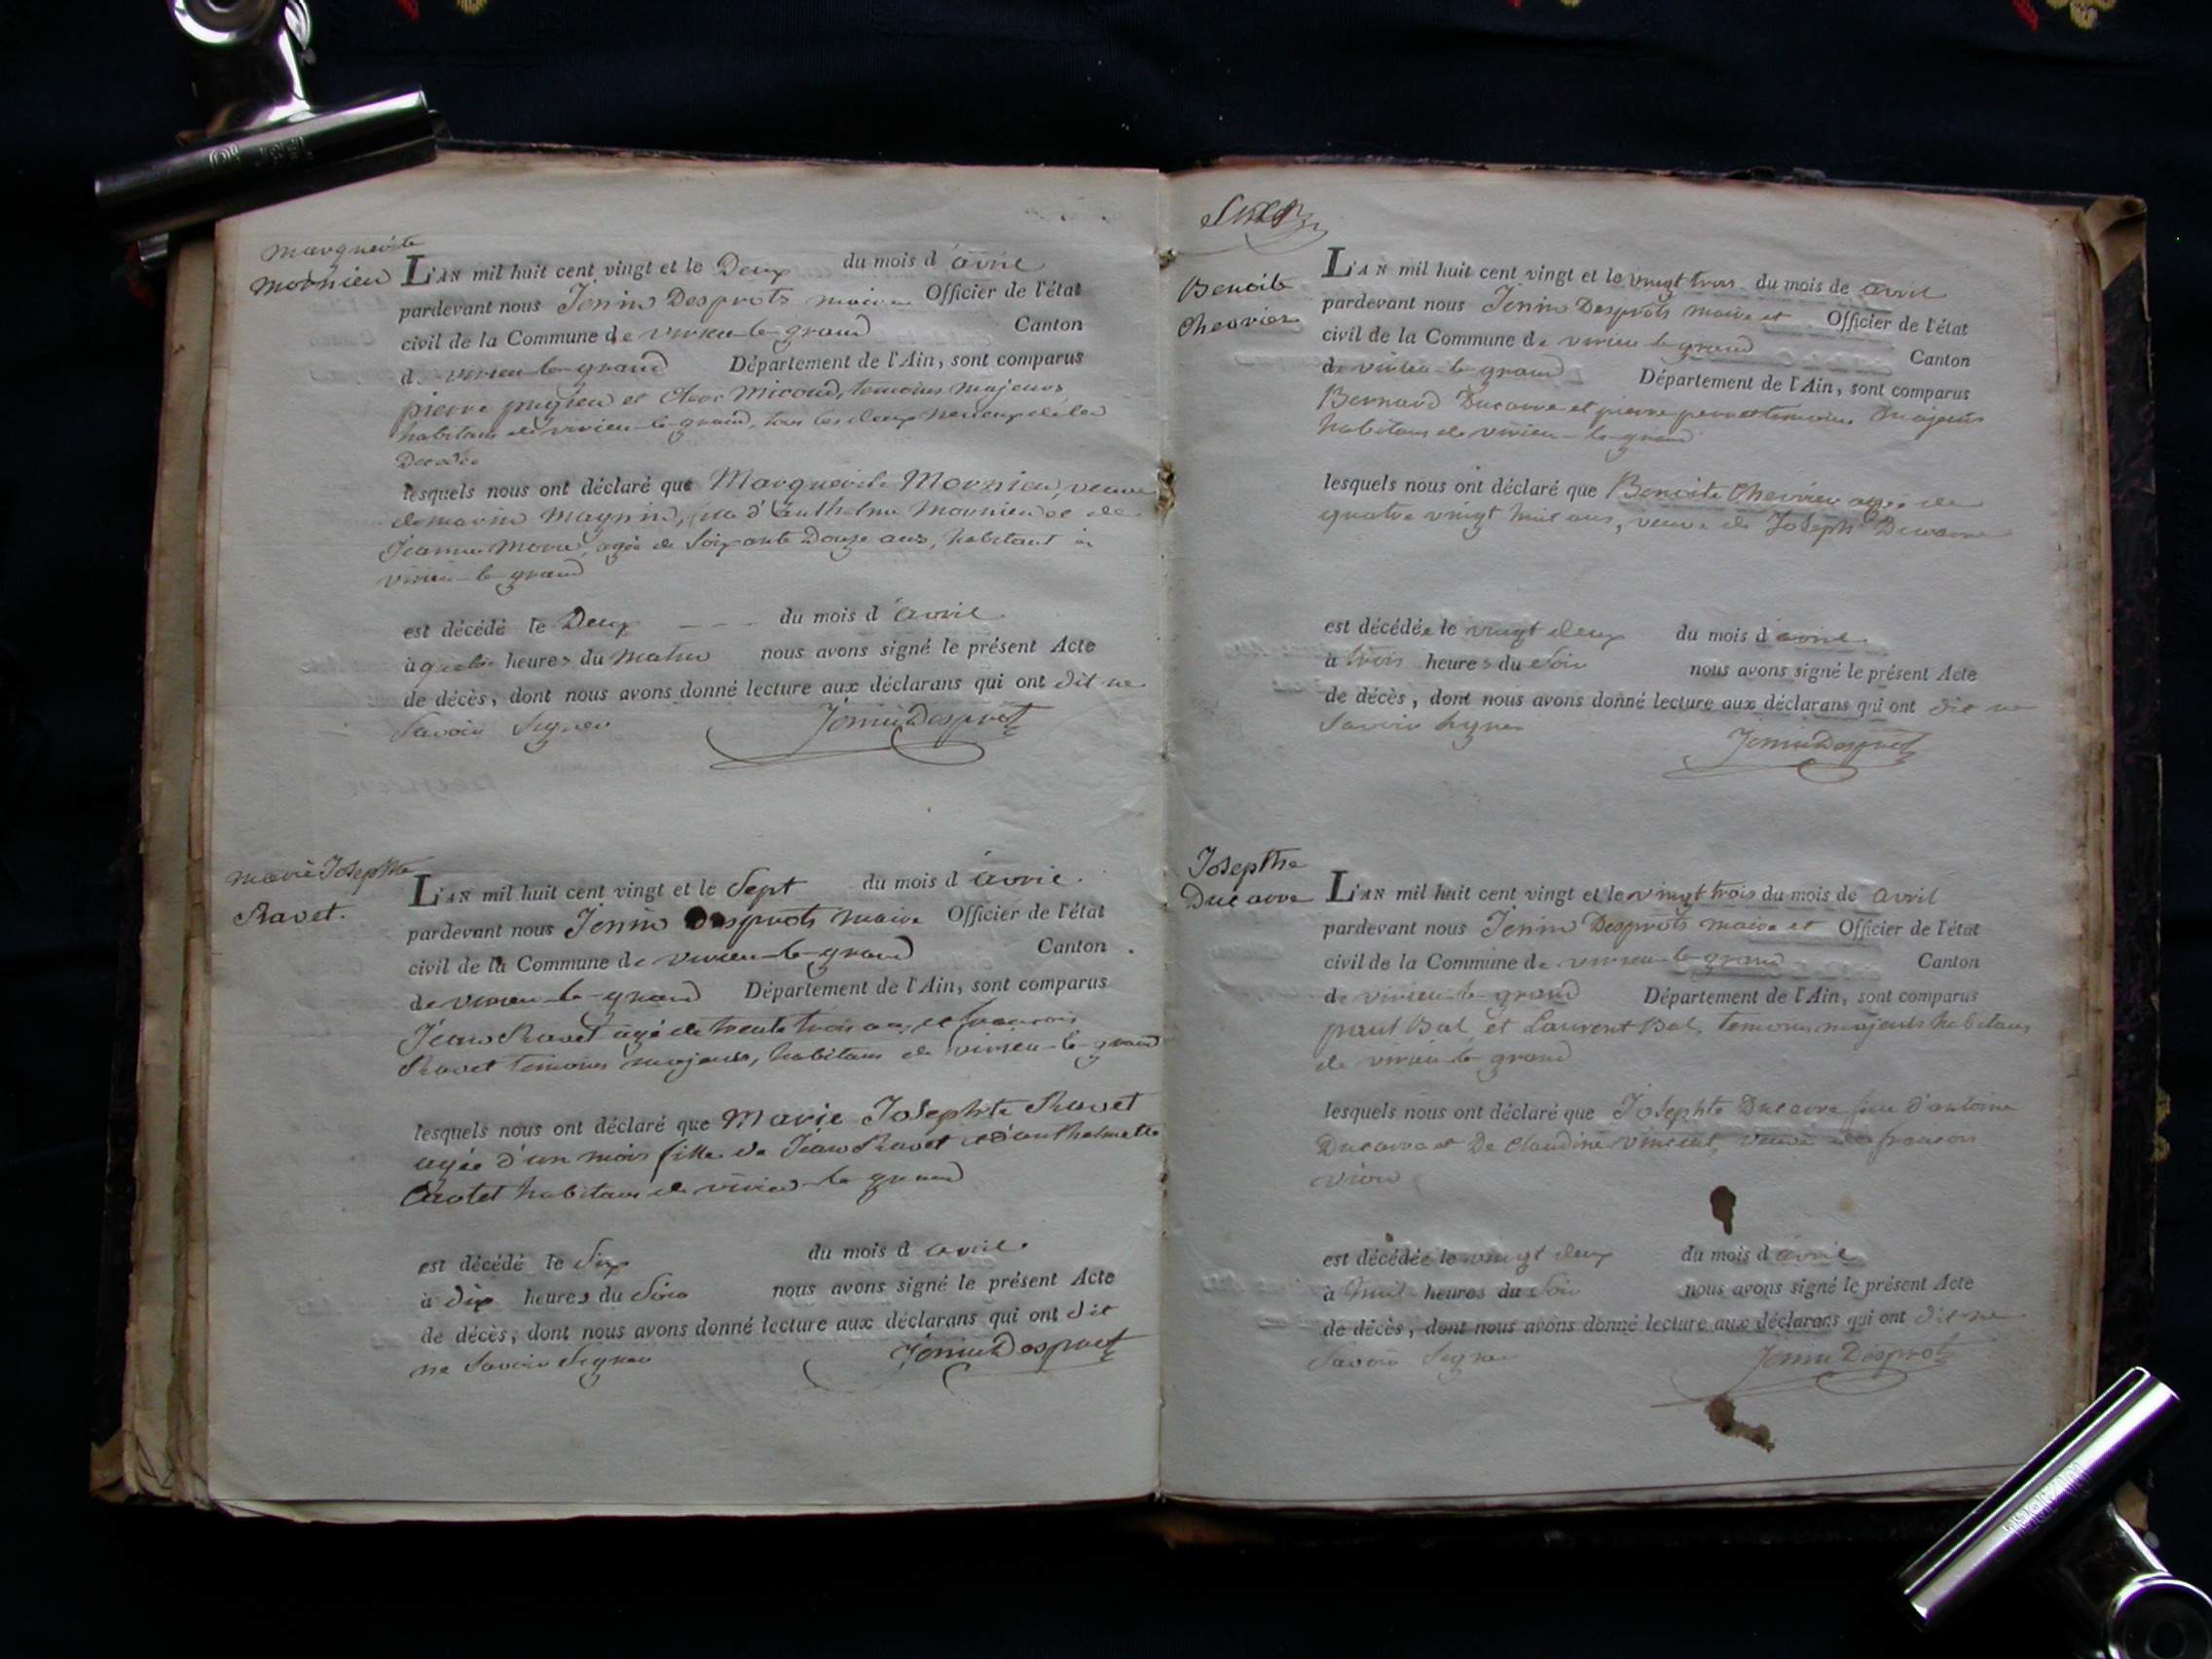 Marguerite
Mornieu
L'AN mil huit cent vingt et le Deux du mois d'avril
pardevant nous Jenin Desprots maire Officier de l'état
civil de la Commune de virieu-le-grand Canton
de virieu-le-grand Département de l'Ain, sont comparus
pierre pugieu et Micoud, temoins majeurs
habitans de virieu-le-grand, tous les deux neveux de la
Decedée
lesquels nous ont déclaré que Marguerite Mornieu, veuve
de marin Magnin, d'anthelme Mornieu et de
Jeanne More, agée de Soixante Douze ans, habitant à
virieu-le-grand
est décédé le Deux --- du mois d'avril
à quatre heures du Matin nous avons signé le présent Acte
de décès, dont nous avons donné lecture aux déclarans qui ont dit ne
Savoir Signer JeninDesprots
marie Josephte
Ravet.
L'AN mil huit cent vingt et le Sept du mois d'avril.
pardevant nous Jenin Desprots maire Officier de l'état
civil de la Commune de virieu-le-grand Canton
de virieu-le-grand Département de l'Ain, sont comparus
Jean Ravet agé de trente trois ans et francois
Ravet temoins majeurs, habitans de virieu-le-grand
lesquels nous ont déclaré que Marie Josephte Ravet
agée d'un mois fille de Jean Ravet et d'anthelmette
habitans de virieu-le-grand
est décédé le Six du mois d'avril.
à dix heures du Soir nous avons signé le présent Acte
de décès, dont nous avons donné lecture aux déclarans qui ont dit
ne Savoir Signer JeninDesprots
Benoite
Chevrier
L'AN mil huit cent vingt et le vingt trois du mois de avril
pardevant nous Jenin Desprots maire et Officier de l'état
civil de la Commune de virieu le grand Canton
de virieu-le-grand Département de l'Ain, sont comparus
Bernard Ducarre et pierre temoins Majeurs
habitans de virieu-le-grand
lesquels nous ont déclaré que Benoite Chevrier agée de
quatre vingt huit ans, veuve de Joseph Ducarre
est décédée le vingt deux du mois d'avril
à trois heures du Soir nous avons signé le présent Acte
de décès, dont nous avons donné lecture aux déclarans qui ont dit ne
Savoir Signer
JeninDesprots
Josephte
Ducarre
L'AN mil huit cent vingt et le vingt trois du mois de avril
pardevant nous Jenin Desprots maire et Officier de l'état
civil de la Commune de virieu-le-grand Canton
de virieu-le-grand Département de l'Ain, sont comparus
paul Bal et Laurent Bal, temoins majeurs habitans
de virieu-le-grand
lesquels nous ont déclaré que Josephte Ducarre d'antoine
Ducarre et De Claudine vincent, veuve de francois
est décédée le vingt deux du mois d'avril
à huit heures du Soir nous avons signé le présent Acte
de décès, dont nous avons donné lecture aux déclarans qui ont dit ne
Savoir Signer JeninDesprots